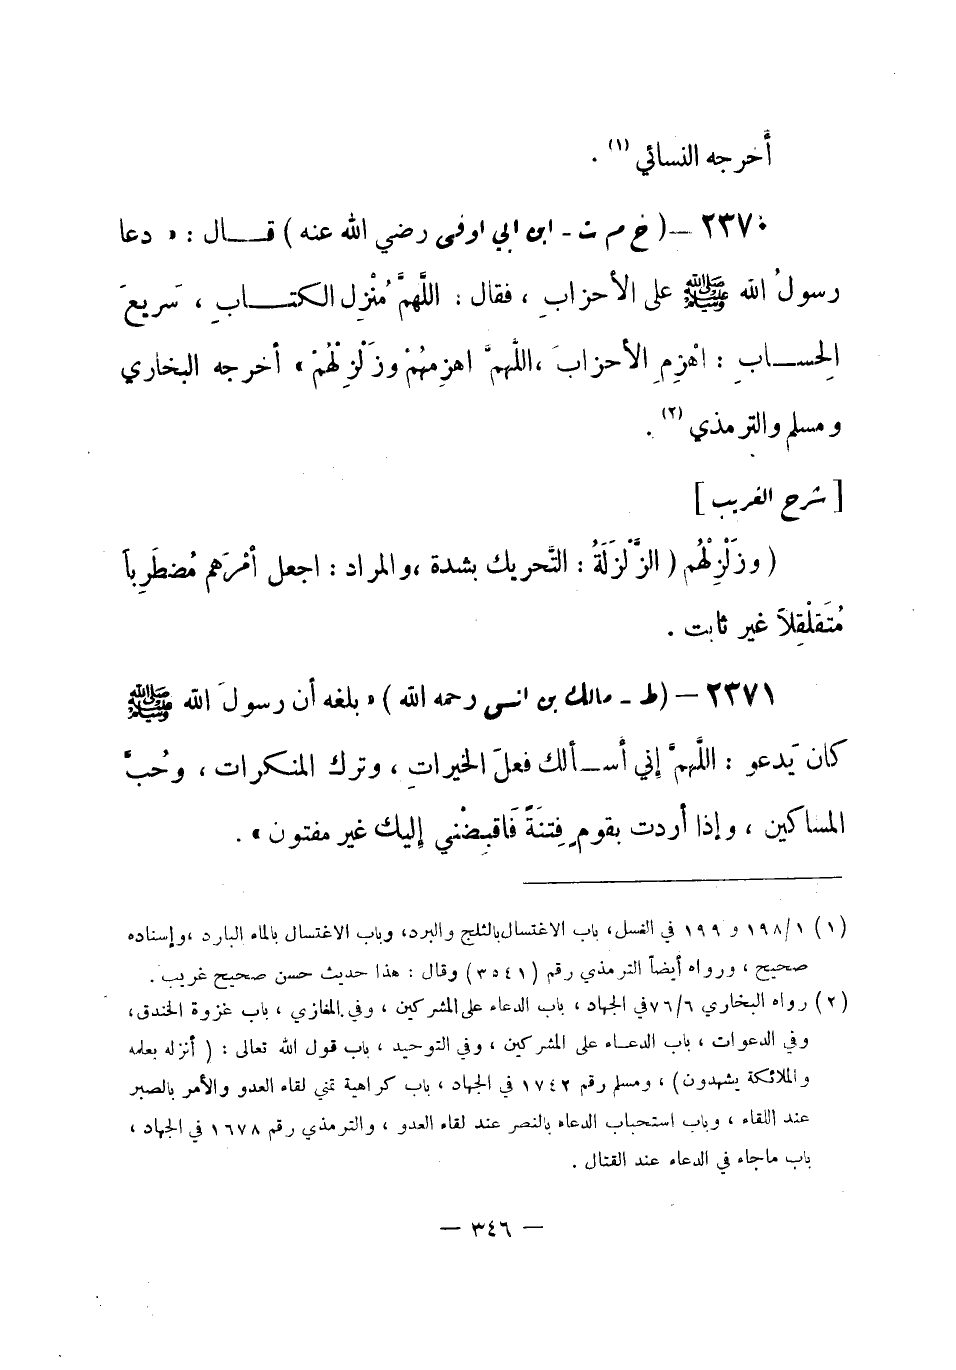 أخرجه النسائي (١) .
٢٣٧٠ – (خ م ت - ابن أبي أوفى رضي الله عنه ) قـــال : « دعا
رسولُ الله ﷺ على الأحزابِ ، فقال : اللَّهمَّ مُنْزِل الكتـــابِ ، سَريعَ
الحِســـابِ : اهْزِمِ الأحزابَ ، اللَّهمَّ اهزِمهُمْ وزَلْزِلْهُمْ » أخرجه البخاري
ومسلم والترمذي (٢) .
[ شرح الغريب ]
( وزَلْزِلْهُم ) الزَّلْزَلَةُ : التَّحريك بشدة ، والمراد : اجعل أمْرَهم مُضطَرِباً
مُتَقلْقِلاً غير ثابت .
٢٣٧١ – (ط - مالك بن أنس رحمه الله ) « بلغه أن رسولَ الله ﷺ
كان يَدعو : اللَّهمَّ إني أســألك فعلَ الخيراتِ ، وترك المنكرات ، وحُبَّ
المساكين ، وإذا أردت بقومٍ فِتنَةً فَاقبِضْني إليك غير مفتون » .
(١) ١٩٨/١ و ١٩٩ في الغسل، باب الاغتسال بالثلج والبرد، وباب الاغتسال بالماء البارد ، وإسناده
صحيح ، ورواه أيضاً الترمذي رقم (٣٥٤١) وقال : هذا حديث حسن صحيح غريب .
(٢) رواه البخاري ٧٦/٦ في الجهاد ، باب الدعاء على المشركين ، وفي المغازي ، باب غزوة الخندق ،
وفي الدعوات ، باب الدعـاء على المشركين ، وفي التوحيد ، باب قول الله تعالى : ( أنزله بعلمه
والملائكة يشهدون ) ، ومسلم رقم ١٧٤٢ في الجهاد ، باب كراهية تمني لقاء العدو والأمر بالصبر
عند اللقاء ، وباب استحباب الدعاء بالنصر عند لقاء العدو ، والترمذي رقم ١٦٧٨ في الجهاد ،
باب ماجاء في الدعاء عند القتال .
– ٣٤٦ –